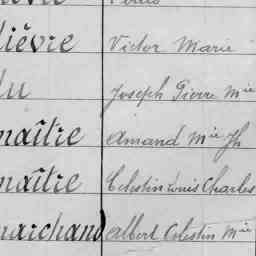 lièvre Victor Marie
lu Joseph Pierre Mie
maître Amand Mie Jh
maître Celestin Louis Charles
marchand Albert Celestin Mie